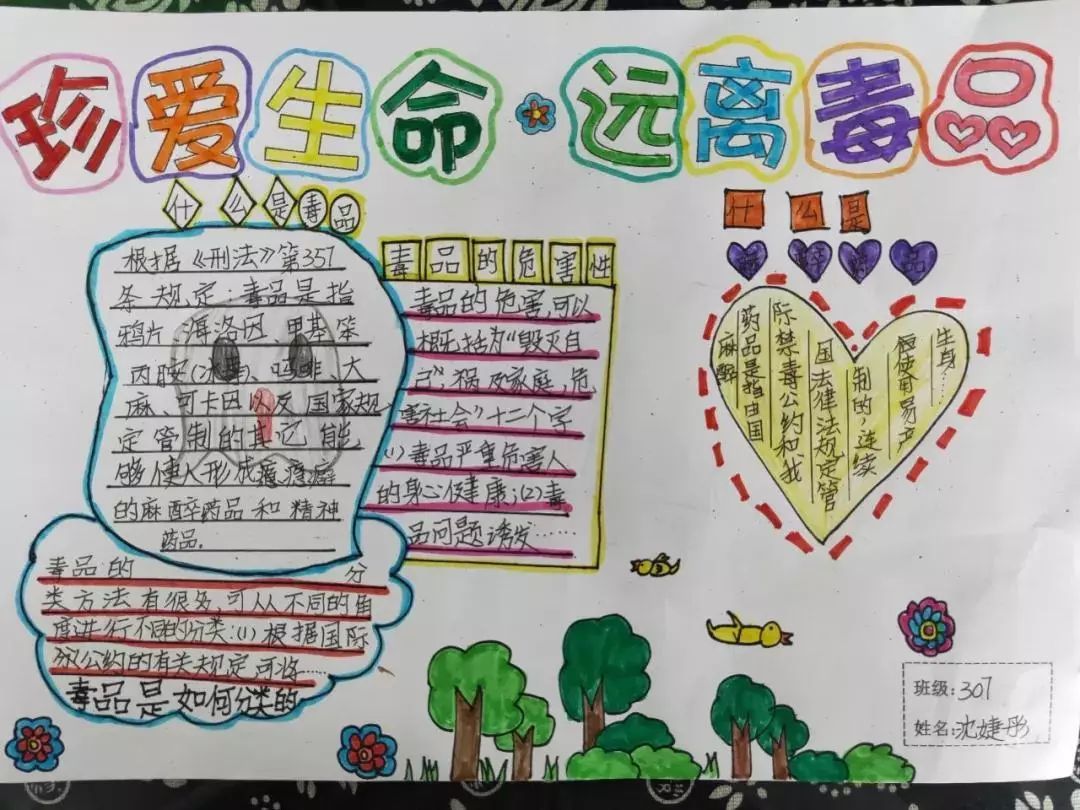 珍爱生命·远离毒品
什么是毒品
根据《刑法》第357
条规定：毒品是指
鸦片、海洛因、甲基苯
丙胺(冰毒)、吗啡、大
麻、可卡因以及国家规
定管制的其它能
够使人形成瘾癖
的麻醉药品和精神
药品.
毒品的危害性
毒品的危害,可以
概括为“毁灭自
己”,祸及家庭,危
害社会”十二个字
(1)毒品严重危害人
的身心健康;(2)毒
品问题诱发……
什么是
麻醉药品
麻醉
药品是指由国
际禁毒公约和我
国法律法规定管
制的,连续
使用易产
生身…
毒品的 分
类方法有很多,可从不同的角
度进行不同的分类:(1)根据国际
公约的有关规定,可将……
毒品是如何分类的
班级:307
姓名:沈婕彤